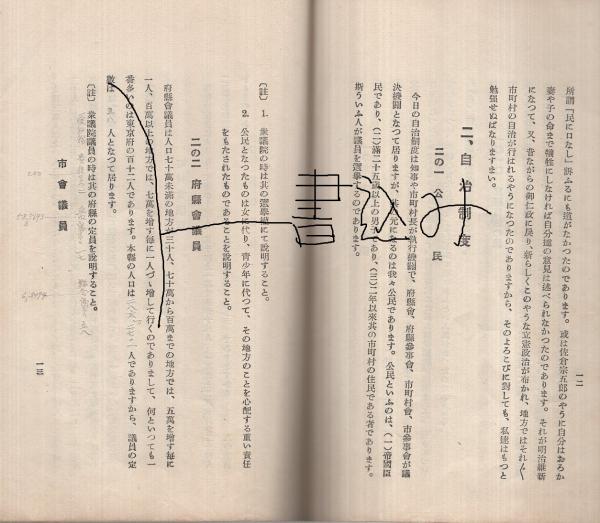 所謂「民に口なし」訴ふるにも道がなかつたのであります。或は佐倉宗五郎のやうに自分はおろか
妻や子の命まで犠牲にしなければ自分達の意見は述べられなかつたのであります。それが明治維新
になつて、又、昔ながらの御仁政に戻り、新らしくこのやうな立憲政治が布かれ、地方ではそれ〴〵
市町村の自治が行はれるやうになつたのでありますから、そのよろこびに對しても、私達はもつと
勉強せねばなりますまい。
二、自治制度
二の一 公民
今日の自治制度は知事や市町村長が執行機關で、府縣會、府縣參事會、市町村會、市參事會が議
決機關となつて居りますが、其の元になるのは我々公民であります。公民といふのは、(一)帝國臣
民であり、(二)滿二十五歳以上の男子であり、(三)二年以來其の市町村の住民である者であります。
斯ういふ人が議員を選擧するのであります。
一二
〔註〕 1. 衆議院の時は其の選擧權に就て說明すること。
2. 公民となつたものは女に代り、青少年に代つて、その地方のことを心配する重い責任
をもたされたものであることを說明すること。
二の二 府縣會議員
府縣會議員は人口七十萬未滿の地方が三十人、七十萬から百萬までの地方では、五萬を增す每に
一人、百萬以上の地方では、七萬を增す每に一人づゝ增して行くのでありまして、何といつても一
番多いのは東京府の百十二人であります。本縣の人口は 人でありますから、議員の定
數は 人となつて居ります。
〔註〕 衆議院議員の時は其の府縣の定員を說明すること。
市會議員
一三
書込み